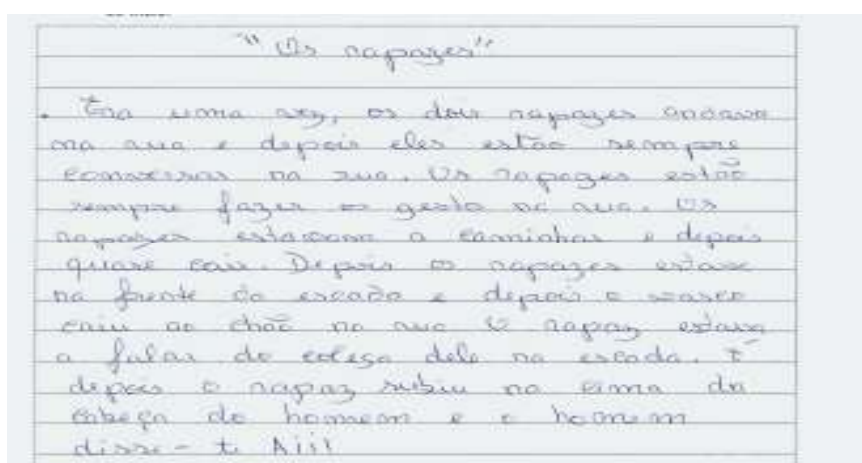 "Os rapazes"
. Era uma vez, os dois rapazes andava
na rua e depois eles estão sempre
conversar na rua. Os rapazes estão
sempre fazer o gesto na rua. Os
rapazes estavam a caminhar e depois
quase cair. Depois os rapazes estava
na frente da escada e depois o
caiu ao chão na rua O rapaz estava
a falar do colega dele na escada. E
depois o rapaz subiu no cima da
cabeça do homem e o homem
disse - Aiii!